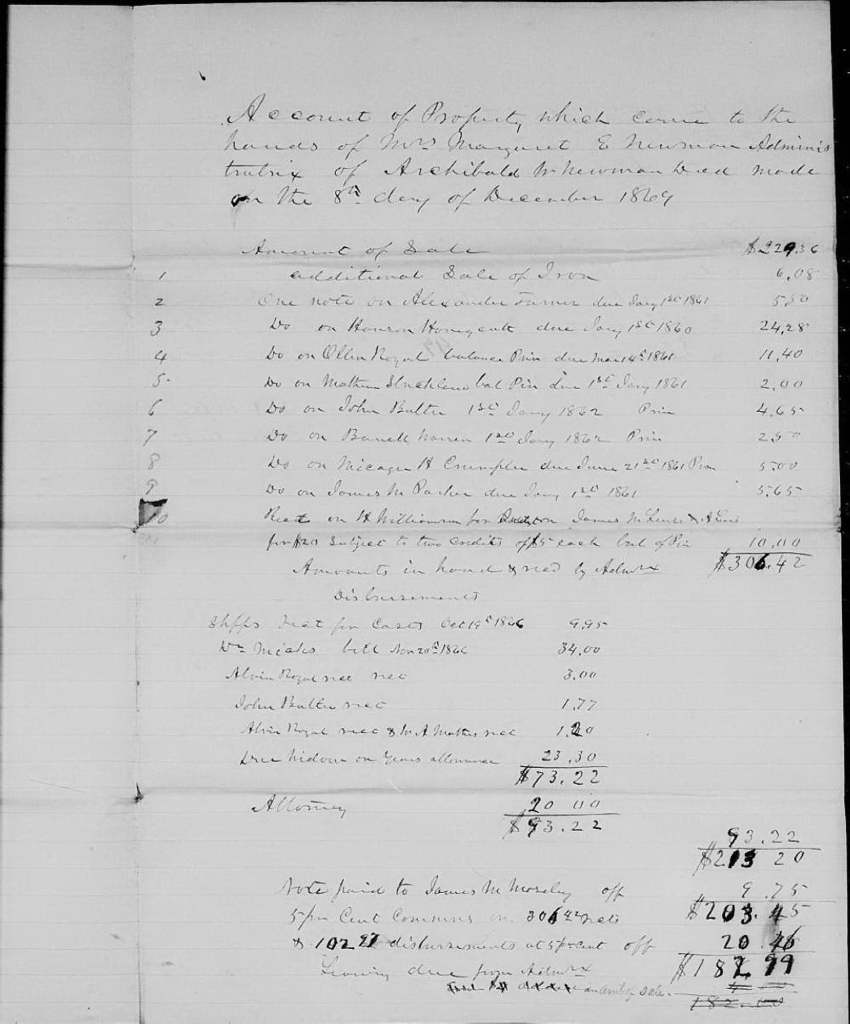 Account of Property which came to the
hands of Mrs Margaret E Newman Adminis
tratrix of Archibald Newman Decd made
on the 8th day of December 1869
Amount of Sale $229.36
1 additional Sale of Iron 6,08
2 One note on Alexander Turner due Jany 1st 1861 5,50
3 Do on Honeycutt due Jany 1st 1860 24,28
4 Do on Ollin Royal balance Prin due 1861 11,40
5 Do on Mathew bal Prin due 1st Jany 1861 2,00
6 Do on John Butler 1st Jany 1862 Prin 4,65
7 Do on Warren 1st Jany 1862 Prin 2,50
8 Do on Micager H Crumpler due June 21st 1861 Prin 5,00
9 Do on James M Parker due Jany 1st 1861 5,65
10 on H Williamson for on James
for $20 Subject to two Credits of $5 each bal of Prin 10.00
Amounts in hand & recd by Admrx $306.42
Disbursements
Shffs for Cost Oct 19th 1866 9,95
Dr bill Nov 20th 1866 34,00
Alvin Royal recd rect 3,00
John Butler rect 1,77
Alvin Royal rect & A rect 1.20
Due Widow on Years allowance 23,30
$73.22
Attorney 20 00
$93.22
93.22
$213 20
Note paid to James M Mosely off 9.75
$203.45
5 per Cent Commns on 306 42 rects
& 102 97 disbursements at 5 pr cent off 20.46
Leaving due from Admrx $182 99
amount of Sale
182.00